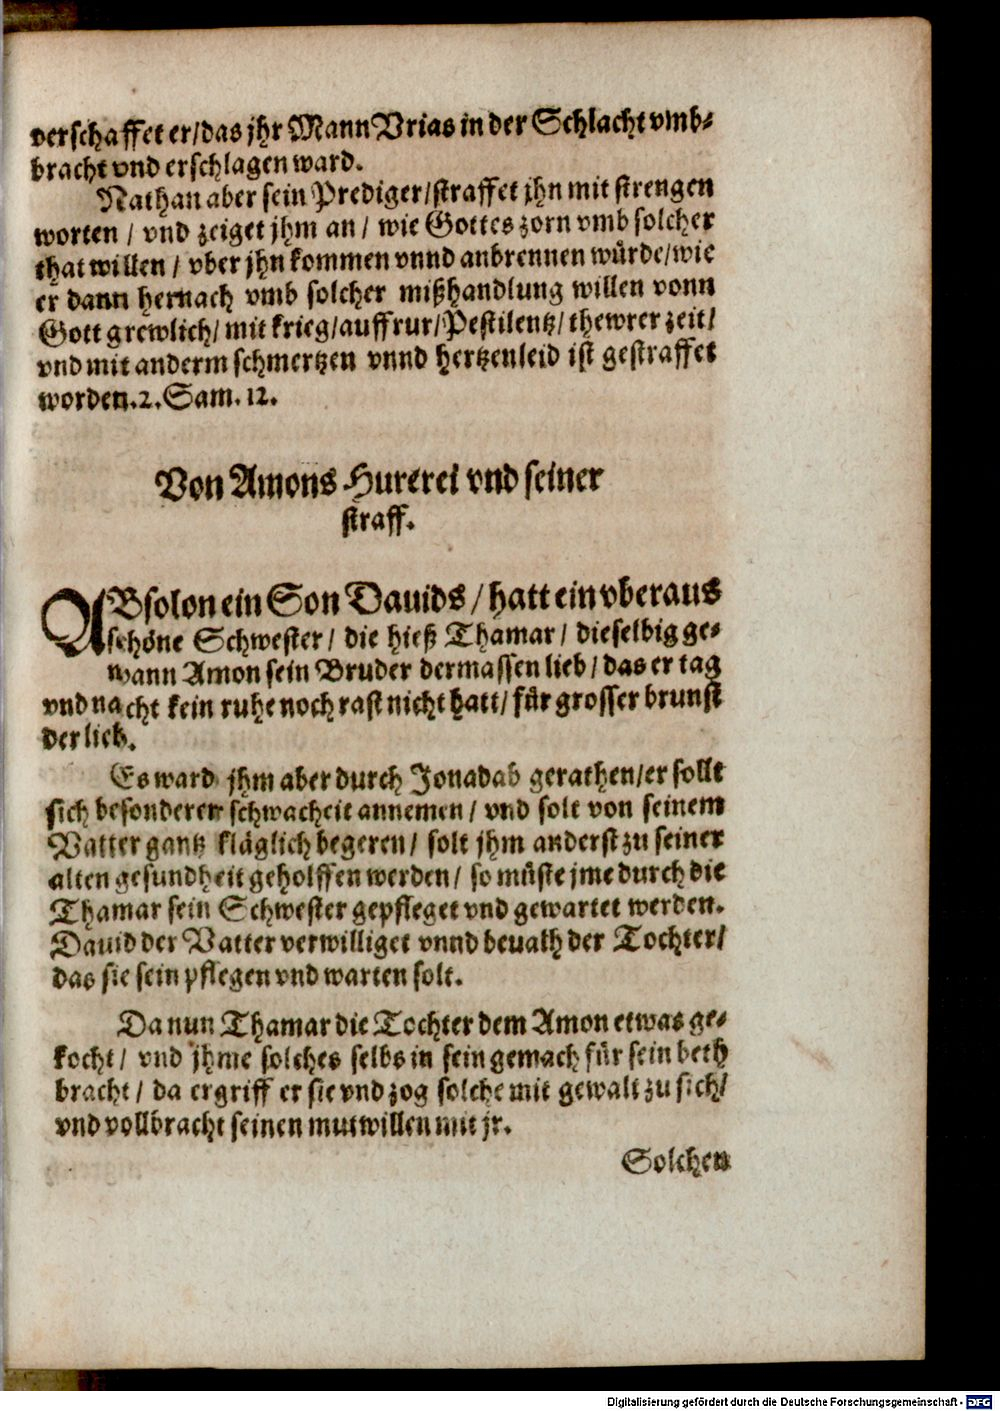 verschaffet er/das jhr Mann Vrias in der Schlacht vmb-
bracht vnd erschlagen ward.
Nathan aber sein Prediger/straffet jhn mit strengen
worten / vnd zeiget jhm an / wie Gottes zorn vmb solcher
that willen / vber jhn kommen vnnd anbrennen würde/wie
er dann hernach vmb solcher mißhandlung willen vonn
Gott grewlich/ mit krieg/auffrur/Pestilentz/ thewrer zeit/
vnd mit anderm schmertzen vnnd hertzenleid ist gestraffet
worden.2.Sam. 12.
Von Amons Hurerei vnd seiner
straff.
ABsolon ein Son Dauids / hatt ein vberaus
schöne Schwester / die hieß Thamar / dieselbig ge-
wann Amon sein Bruder dermassen lieb / das er tag
vnd nacht kein ruhe noch rast nicht hatt/ für grosser brunst
der lieb.
Es ward jhm aber durch Jonadab gerathen/er sollt
sich besonderer schwacheit annemen / vnd solt von seinem
Vatter gantz kläglich begeren / solt jhm anderst zu seiner
alten gesundheit geholffen werden / so müste jme durch die
Thamar sein Schwester gepfleget vnd gewartet werden.
Dauid der Vatter verwilliget vnnd beuath der Tochter/
das sie sein pflegen vnd warten solt.
Da nun Thamar die Tochter dem Amon etwas ge-
kocht / vnd jhme solches selbs in sein gemach für sein beth
bracht / da ergriff er sie vnd zog solche mit gewalt zu sich/
vnd vollbracht seinen mutwillen mit jr.
Solchen
Digitalisierung gefördert durch die Deutsche Forschungsgemeinschaft - DFG